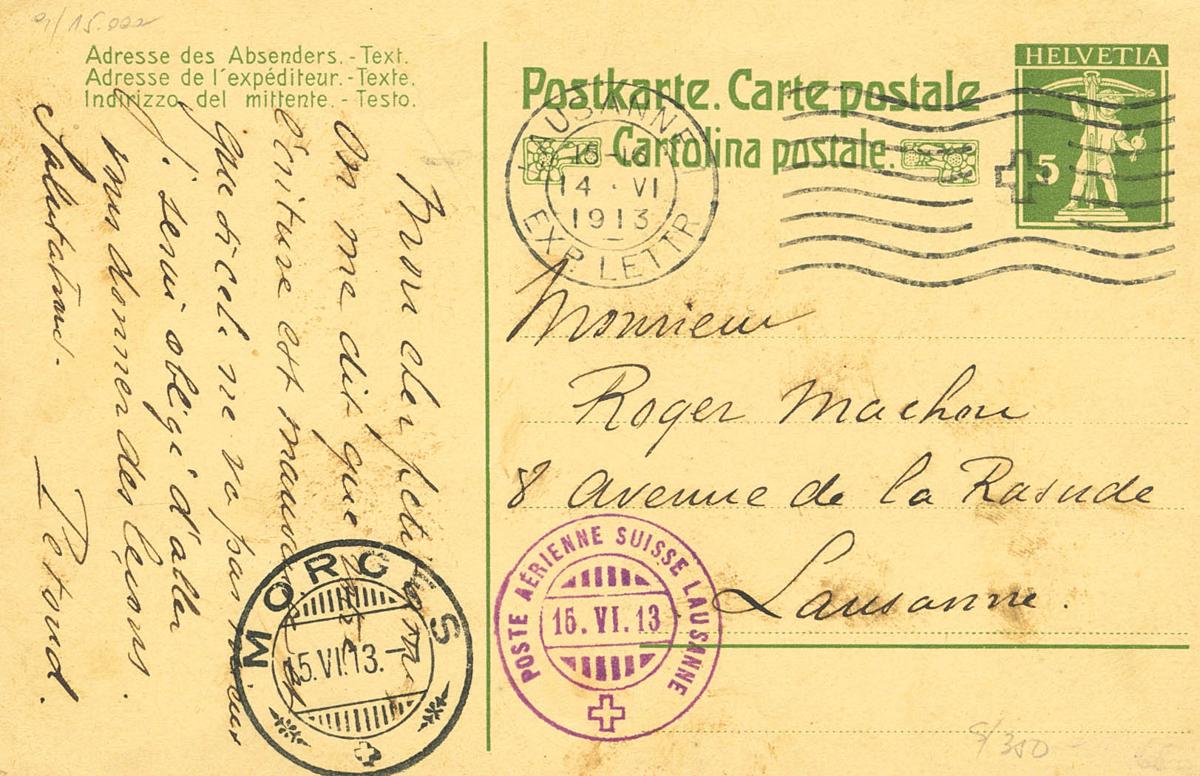 Adresse des Absenders. - Text.
Adresse de l'expéditeur. - Texte.
Indirizzo del mittente. - Testo.
Mon cher petit
On me dit que
écriture est mauv
que si cela ne va pas
j'serai obligé d'aller
vous donner des leçons.
Salutations.
Postkarte. Carte postale
Cartolina postale.
HELVETIA
5
LAUSANNE 1
15-16
14 · VI
1913
EXP. LETTR
Monsieur
Roger Machon
8 Avenue de la Rasude
Lausanne.
MORGES
15.VI.13.-
POSTE AÉRIENNE SUISSE LAUSANNE
15.VI.13